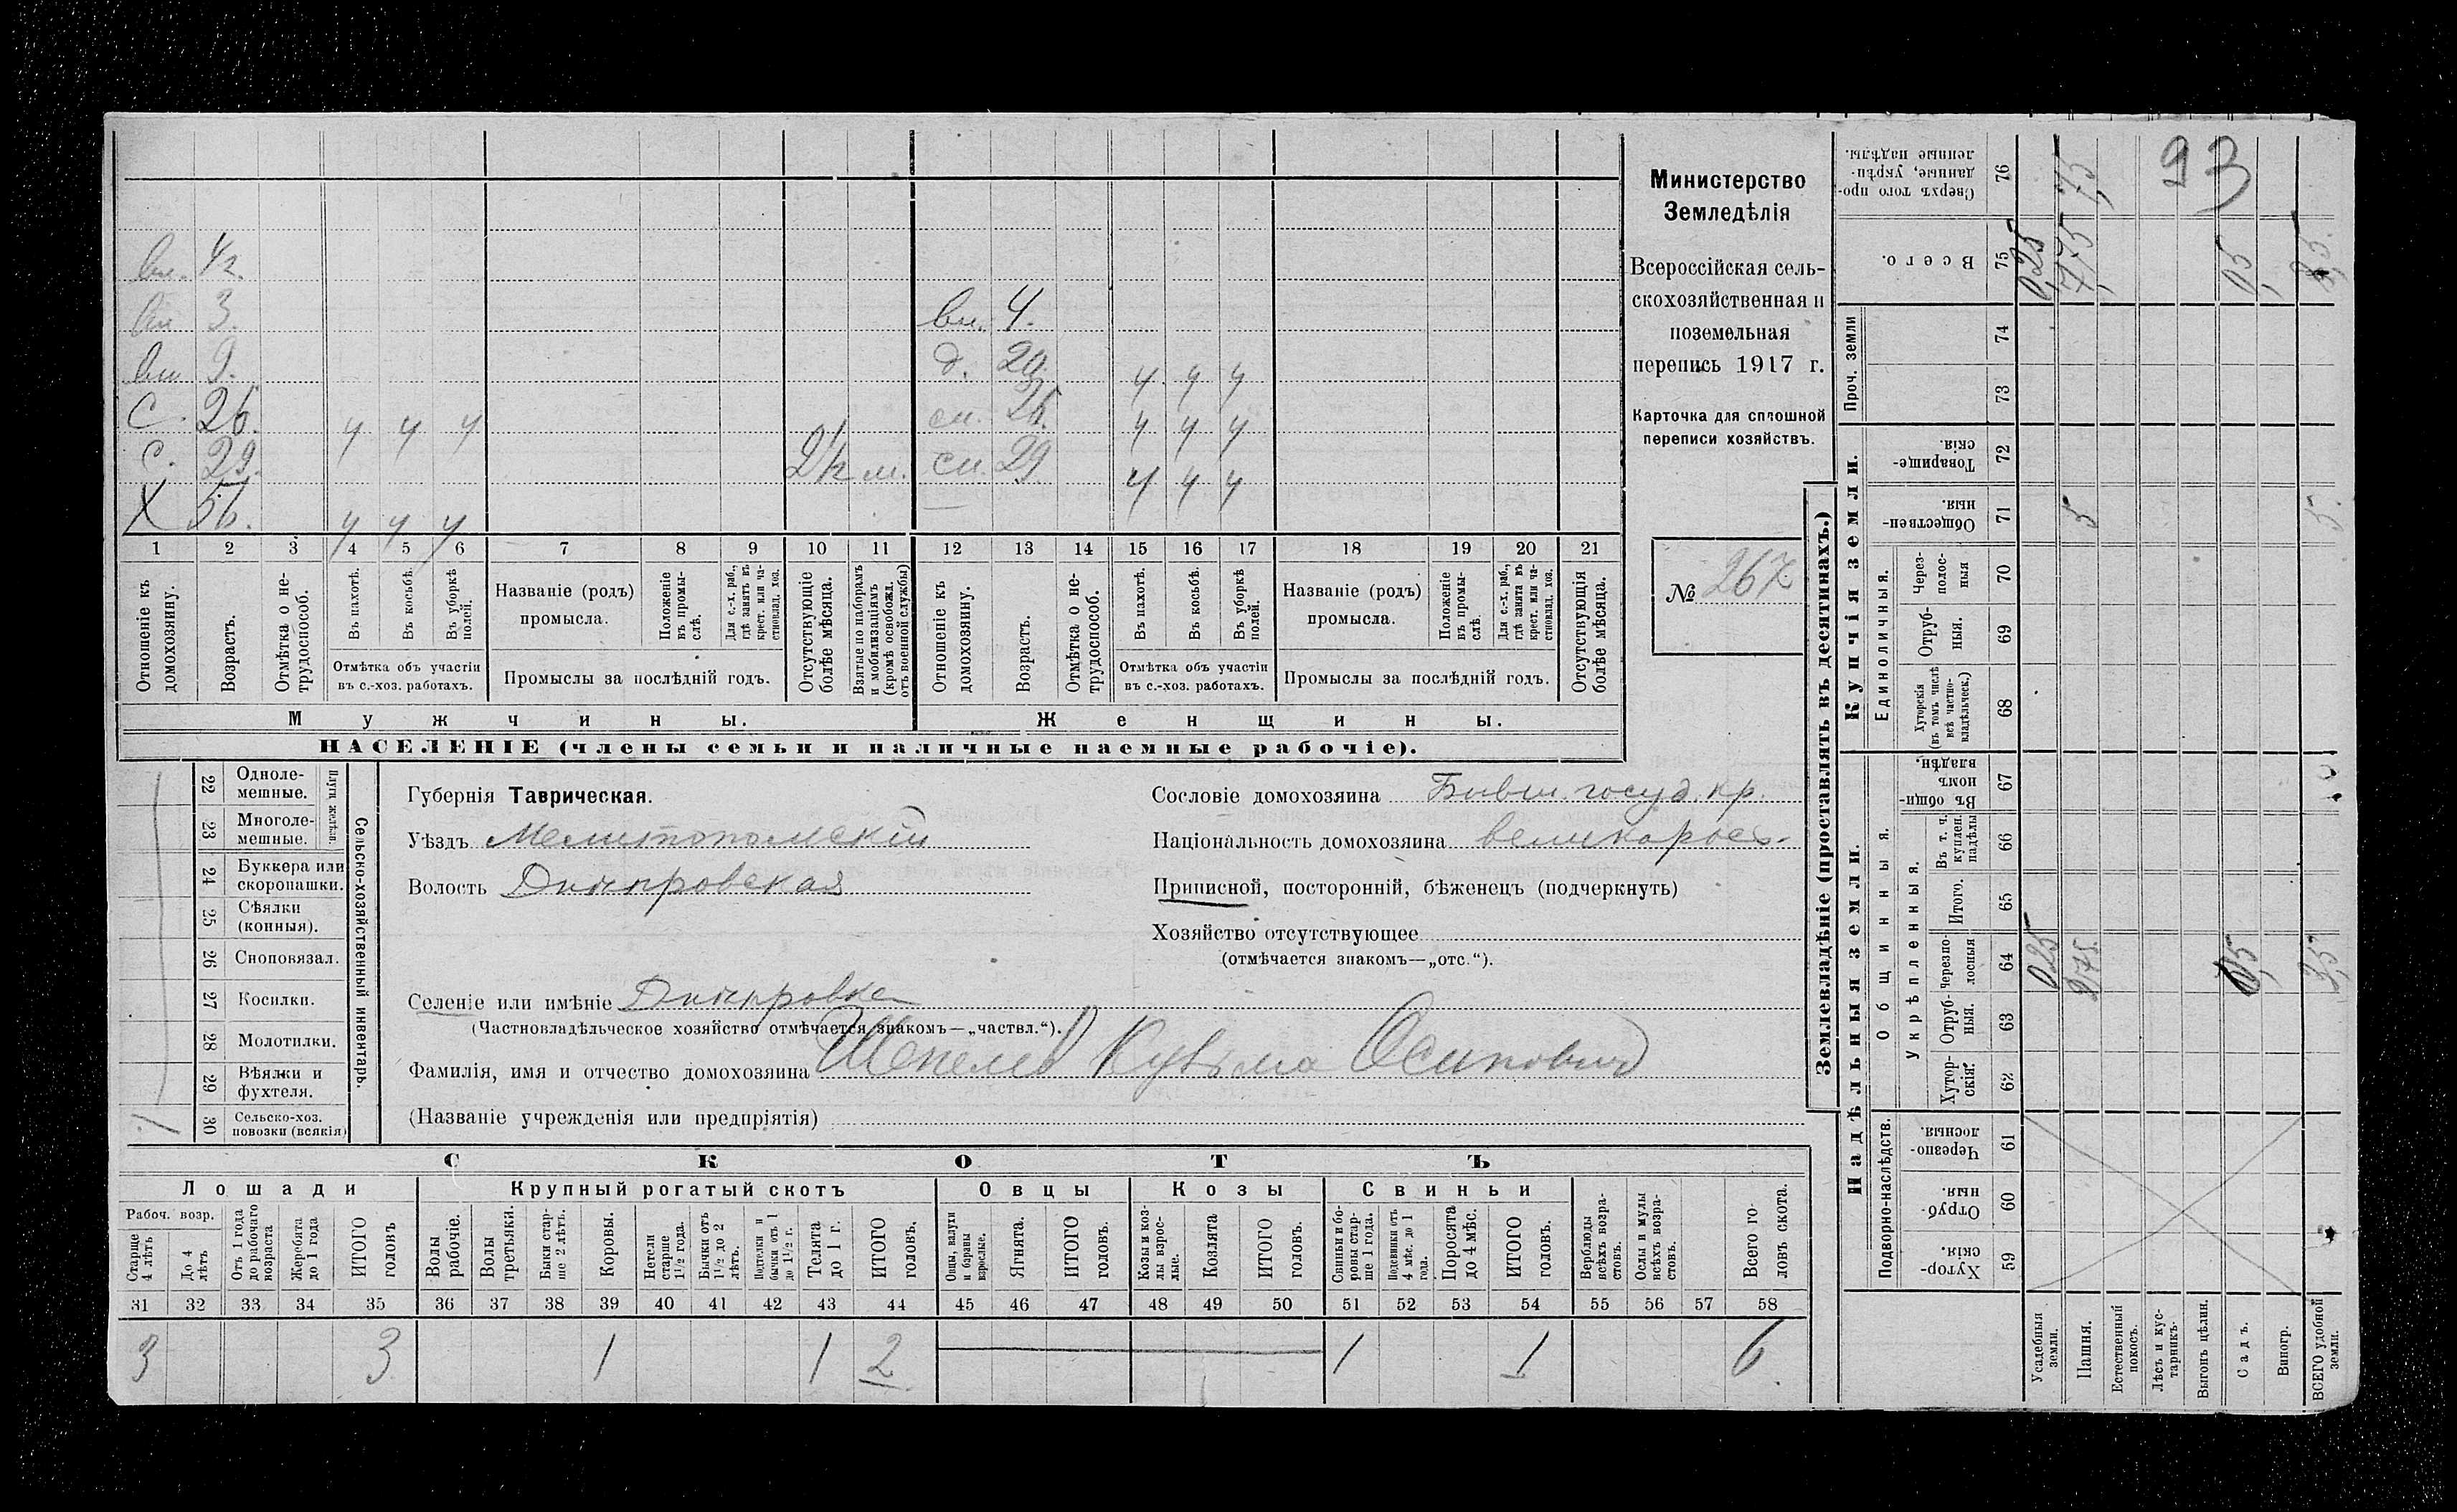 Министерство
Земледѣлія
Всероссійская сель-
скохозяйственная и
поземельная
перепись 1917 г.
Карточка для сплошной
переписи хозяйствъ.
№ 267
93
вн. 4 г.
вн 3. вн. 4.
вн 9. д. 20. ч ч ч
с. 26. ч ч ч сн. 26. ч ч ч
с. 29. 2½ м. сн. 29 ч ч ч
Х 56. ч ч ч
1 2 3 4 5 6 7 8 9 10 11 12 13 14 15 16 17 18 19 20 21
Отношеніе къ домохозяину.
Возрастъ.
Отмѣтка о не-трудоспособ.
Въ пахотѣ.
Въ косьбѣ.
Въ уборкѣ полей.
Отмѣтка объ участіи
въ с.-хоз. работахъ.
Названіе (родъ)
промысла.
Положеніе въ промы-слѣ.
Для с.-х. раб., гдѣ занятъ въ крест. или ча-стновлад. хоз.
Промыслы за послѣдній годъ.
Отсутствующіе болѣе мѣсяца.
Взятые по наборамъ и мобилизаціямъ (кромѣ освобожд. отъ военной службы)
Отношеніе къ домохозяину.
Возрастъ.
Отмѣтка о не-трудоспособ.
Въ пахотѣ.
Въ косьбѣ.
Въ уборкѣ полей.
Отмѣтка объ участіи
въ с.-хоз. работахъ.
Названіе (родъ)
промысла.
Положеніе въ промы-слѣ.
Для с.-х. раб., гдѣ занята въ крест. или ча-стновлад. хоз.
Промыслы за послѣдній годъ.
Отсутствующія болѣе мѣсяца.
Мужчины. Женщины.
НАСЕЛЕНІЕ (члены семьи и наличные наемные рабочіе).
Сельско-хозяйственный инвентарь.
Плуги желѣзн.
22 Одноле-мешные.
23 Многоле-мешные.
24 Буккера или скоропашки.
25 Сѣялки (конныя).
26 Сноповязал.
27 Косилки.
28 Молотилки.
29 Вѣялки и фухтеля.
30 Сельско-хоз. повозки (всякія) 1
Губернія Таврическая.
Уѣздъ Мелитопольскій
Волость Днѣпровская
Селеніе или имѣніе Днѣпровка
(Частновладѣльческое хозяйство отмѣчается знакомъ—„частвл.“).
Фамилія, имя и отчество домохозяина Шепелъ Кузьма Осиповичъ
(Названіе учрежденія или предпріятія)
Сословіе домохозяина Бывш. госуд. кр.
Національность домохозяина великоросс.
Приписной, посторонній, бѣженецъ (подчеркнуть)
Хозяйство отсутствующее
(отмѣчается знакомъ—„отс.“).
СКОТЪ
Лошади Крупный рогатый скотъ Овцы Козы Свиньи
Рабоч. возр.
Старше 4 лѣтъ
До 4 лѣтъ
Отъ 1 года до рабочаго возраста
Жеребята до 1 года
ИТОГО головъ
Волы рабочіе.
Волы третьяки.
Быки стар-ше 2 лѣтъ.
Коровы.
Нетели старше 1½ года.
Бычки отъ 1½ до 2 лѣтъ.
Подтелки и бычки отъ 1 до 1½ г.
Телята до 1 г.
ИТОГО головъ.
Овцы, валухи и бараны взрослые.
Ягнята.
ИТОГО головъ.
Козы и коз-лы взрос-лые.
Козлята
ИТОГО головъ.
Свиньи и бо-ровы стар-ше 1 года.
Подсвинки отъ 4 мѣс. до 1 года.
Поросята до 4 мѣс.
ИТОГО головъ.
Верблюды всѣхъ возра-стовъ.
Ослы и мулы всѣхъ возра-стовъ.
Всего го-ловъ скота.
31 32 33 34 35 36 37 38 39 40 41 42 43 44 45 46 47 48 49 50 51 52 53 54 55 56 57 58
3 3 1 1 2 1 1 6
Землевладѣніе (проставлять въ десятинахъ.)
Надѣльныя земли. Купчія земли. Проч. земли
Подворно-наслѣдств.
Общинныя.
Укрѣпленныя.
Единоличныя.
76 Сверхъ того про-данные, укрѣп-ленные надѣлы.
75 Всего. 0,25 7,75 0,5 8,5
74
73
72 Товарище-скія.
71 Обществен-ныя 5 5.
70 Через-полос-ныя
69 Отруб-ныя.
68 Хуторскія (въ томъ числѣ всѣ частно-владѣльческ.)
67 Въ общи-номъ владѣн.
66 Въ т. ч. куплен. надѣлы
65 Итого.
64 Черезпо-лосныя 0,25 2,75 0,5 3,5
63 Отруб-ныя.
62 Хутор-скія.
61 Черезпо-лосныя.
60 Отруб-ныя.
59 Хутор-скія.
Усадебныя земли.
Пашня.
Естественный покосъ.
Лѣсъ и кус-тарникъ.
Выгонъ цѣлин.
Садъ.
Виногр.
ВСЕГО удобной земли.